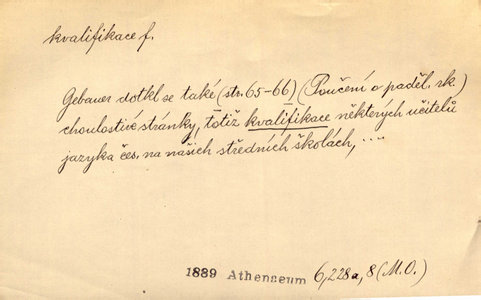 kvalifikace f.
Gebauer dotkl se také (str. 65-66) (Poučení o paděl. rk.)
choulostivé stránky, totiž kvalifikace některých učitelů
jazyka čes. na našich středních školách, ....
1889 Athenaeum 6,228a, 8 (M.O.)